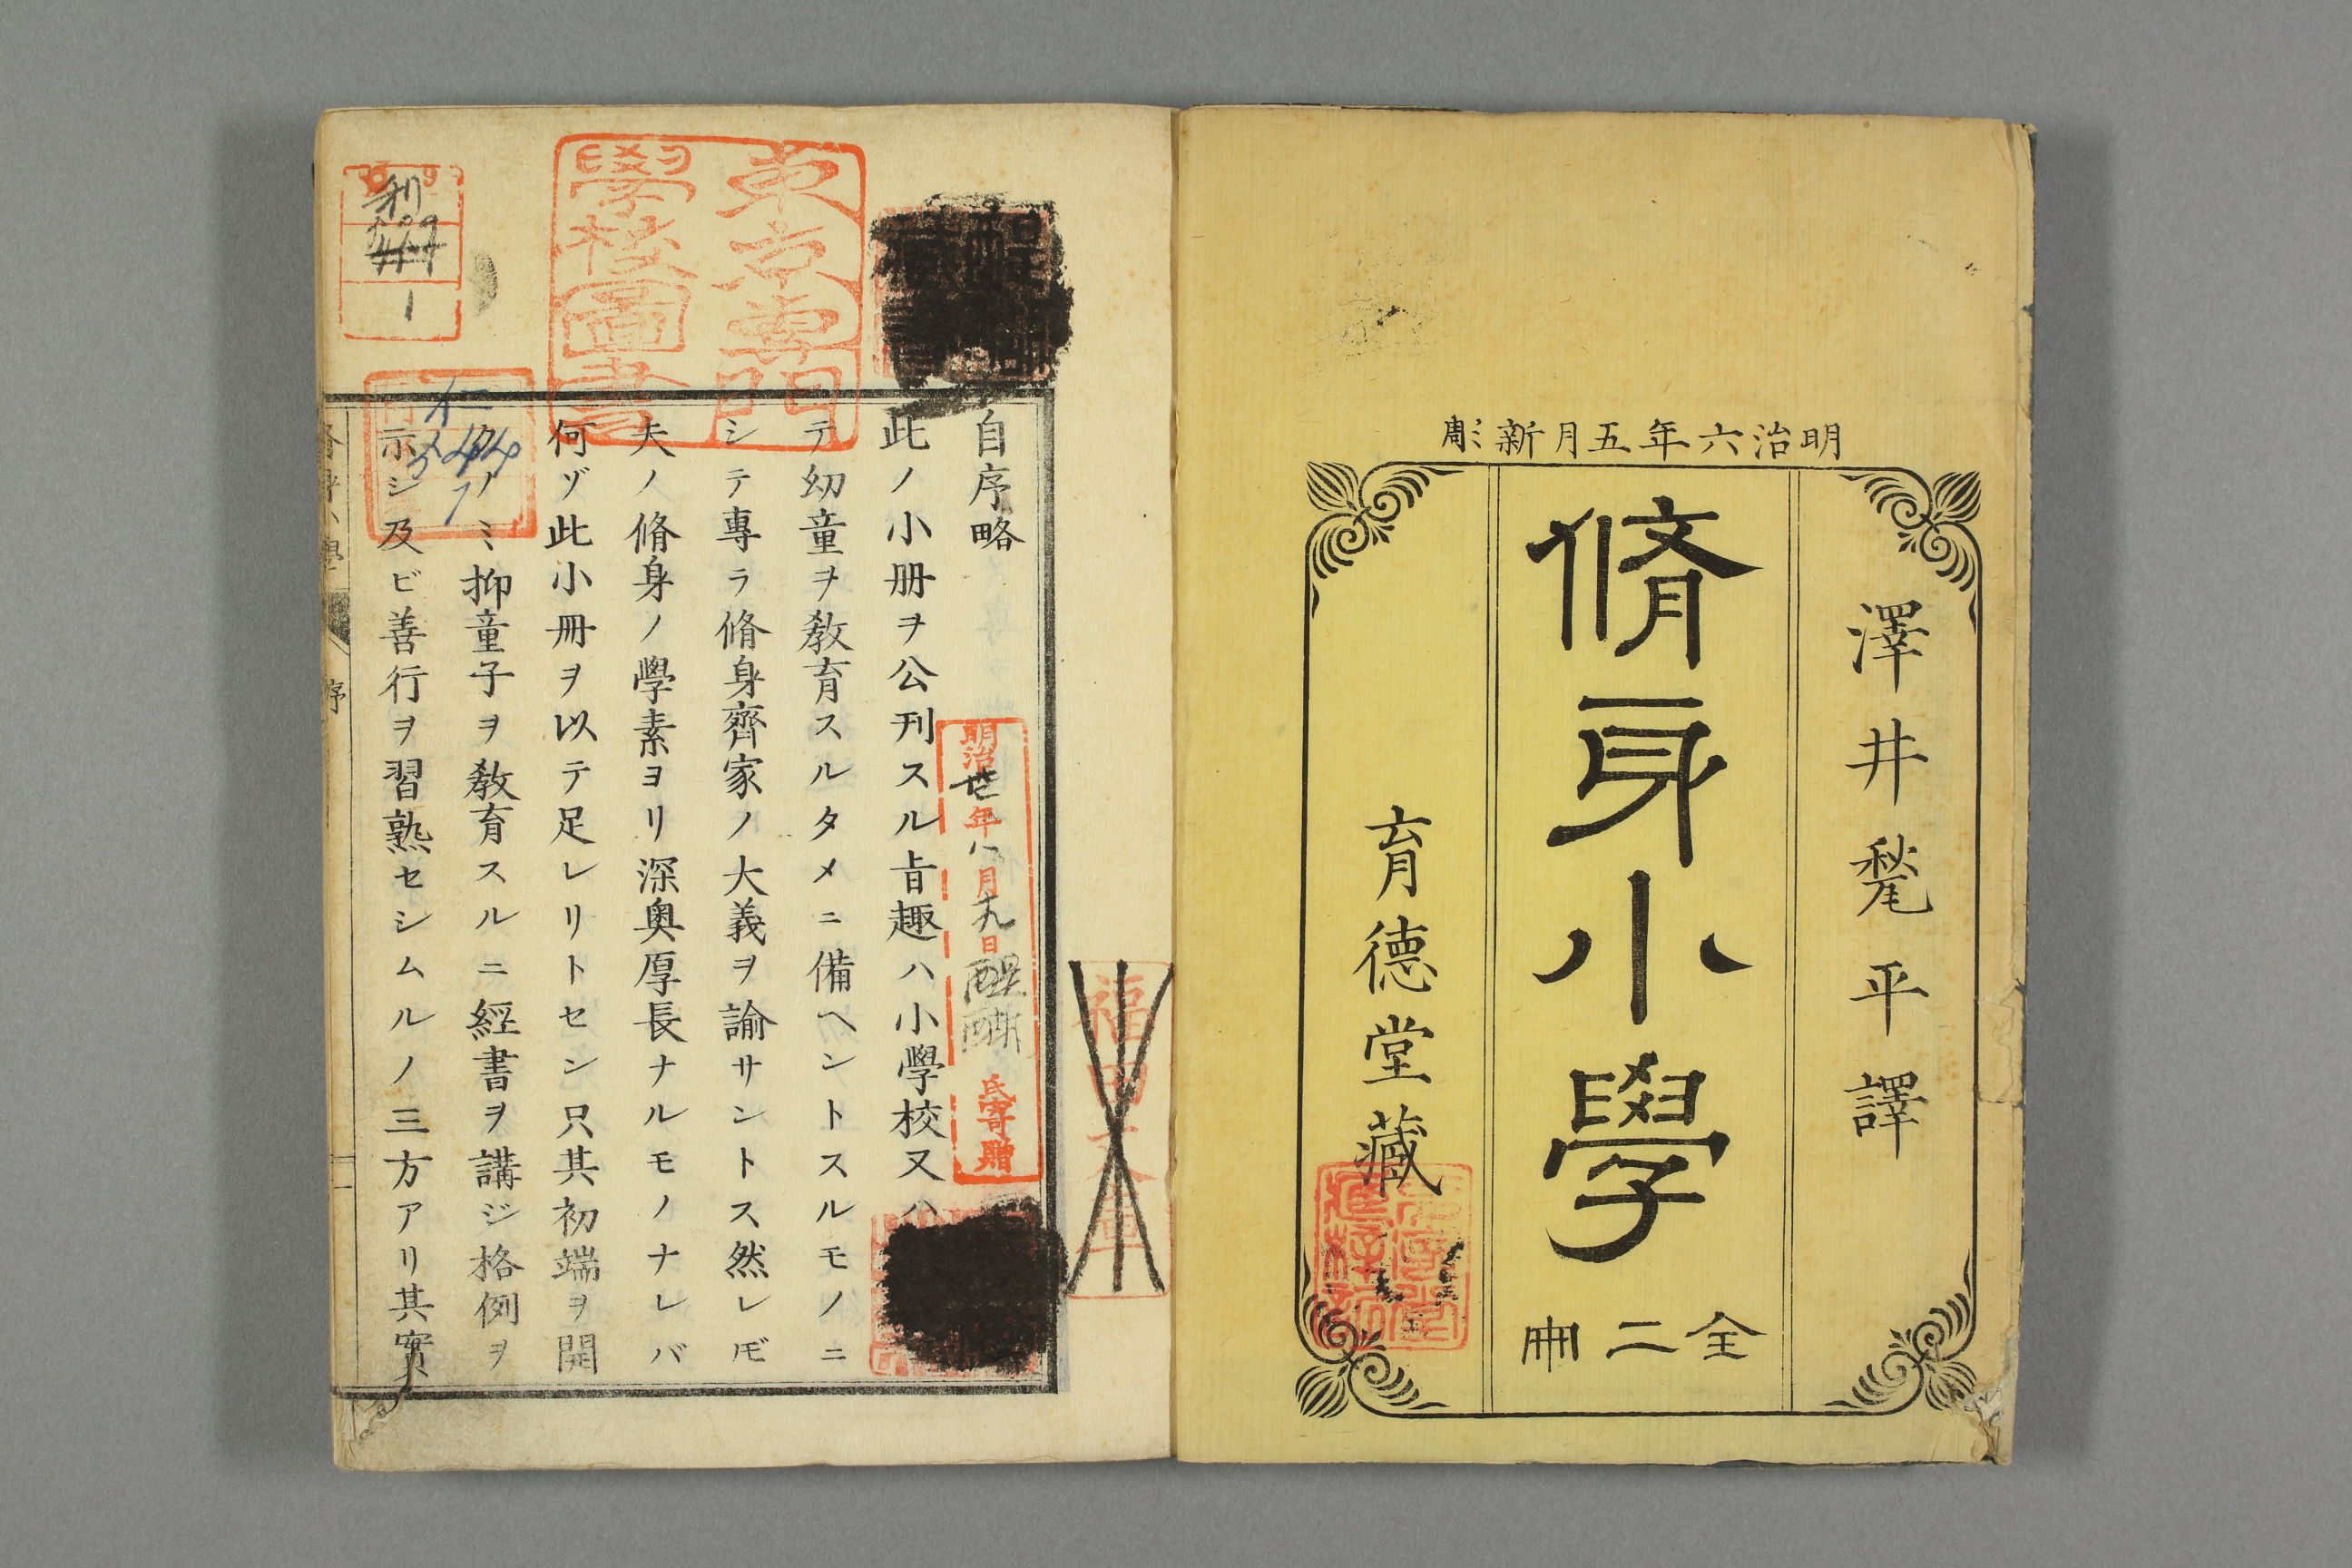 明治六年五月新彫
澤井甃平譯
脩身小學
全二冊
育德堂藏
自序略
此ノ小册ヲ公刊スル㫖趣ハ小學校又ハ
テ幼童ヲ教育スルタメニ備ヘントスルモノニ
シテ專ラ脩身齊家ノ大義ヲ諭サントス然レ𪜈
夫ノ脩身ノ學素ヨリ深奥厚長ナルモノナレバ
何ヅ此小冊ヲ以テ足レリトセン只其初端ヲ開
クノミ抑童子ヲ教育スルニ經書ヲ講ジ格例ヲ
示シ及ビ善行ヲ習熟セシムルノ三方アリ其實
序
東京專門
學校圖書
明治廿年八月九日
氏寄贈
1